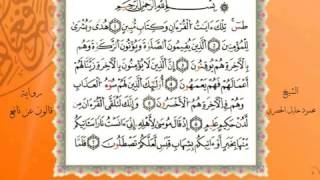 بِسْمِ اللَّهِ الرَّحْمَٰنِ الرَّحِيمِ
طسٓ تِلْكَ ءَايَٰتُ الْقُرْءَانِ وَكِتَابٍ مُّبِينٍ ① هُدًى وَبُشْرَىٰ
لِلْمُؤْمِنِينَ ② الَّذِينَ يُقِيمُونَ الصَّلَوٰةَ وَيُؤْتُونَ الزَّكَوٰةَ وَهُم
بِالْأَخِرَةِ هُمْ يُوقِنُونَ ③ إِنَّ الَّذِينَ لَا يُؤْمِنُونَ بِالْأَخِرَةِ زَيَّنَّا لَهُمْ
أَعْمَٰلَهُمْ فَهُمْ يَعْمَهُونَ ④ أُوْلَٰٓئِكَ الَّذِينَ لَهُمْ سُوٓءُ الْعَذَابِ
وَهُمْ فِي الْأَخِرَةِ هُمُ الْأَخْسَرُونَ ⑤ وَإِنَّكَ لَتُلَقَّى الْقُرْءَانَ مِن
لَّدُنْ حَكِيمٍ عَلِيمٍ ⑥ إِذْ قَالَ مُوسَىٰ لِأَهْلِهِ إِنِّيَ ءَانَسْتُ نَارًا سَـَٔاتِيكُم
مِّنْهَا بِخَبَرٍ أَوْ ءَاتِيكُم بِشِهَابِ قَبَسٍ لَّعَلَّكُمْ تَصْطَلُونَ ⑦ فَلَمَّا
الشيخ
محمود خليل الحصري
رواية
قالون عن نافع